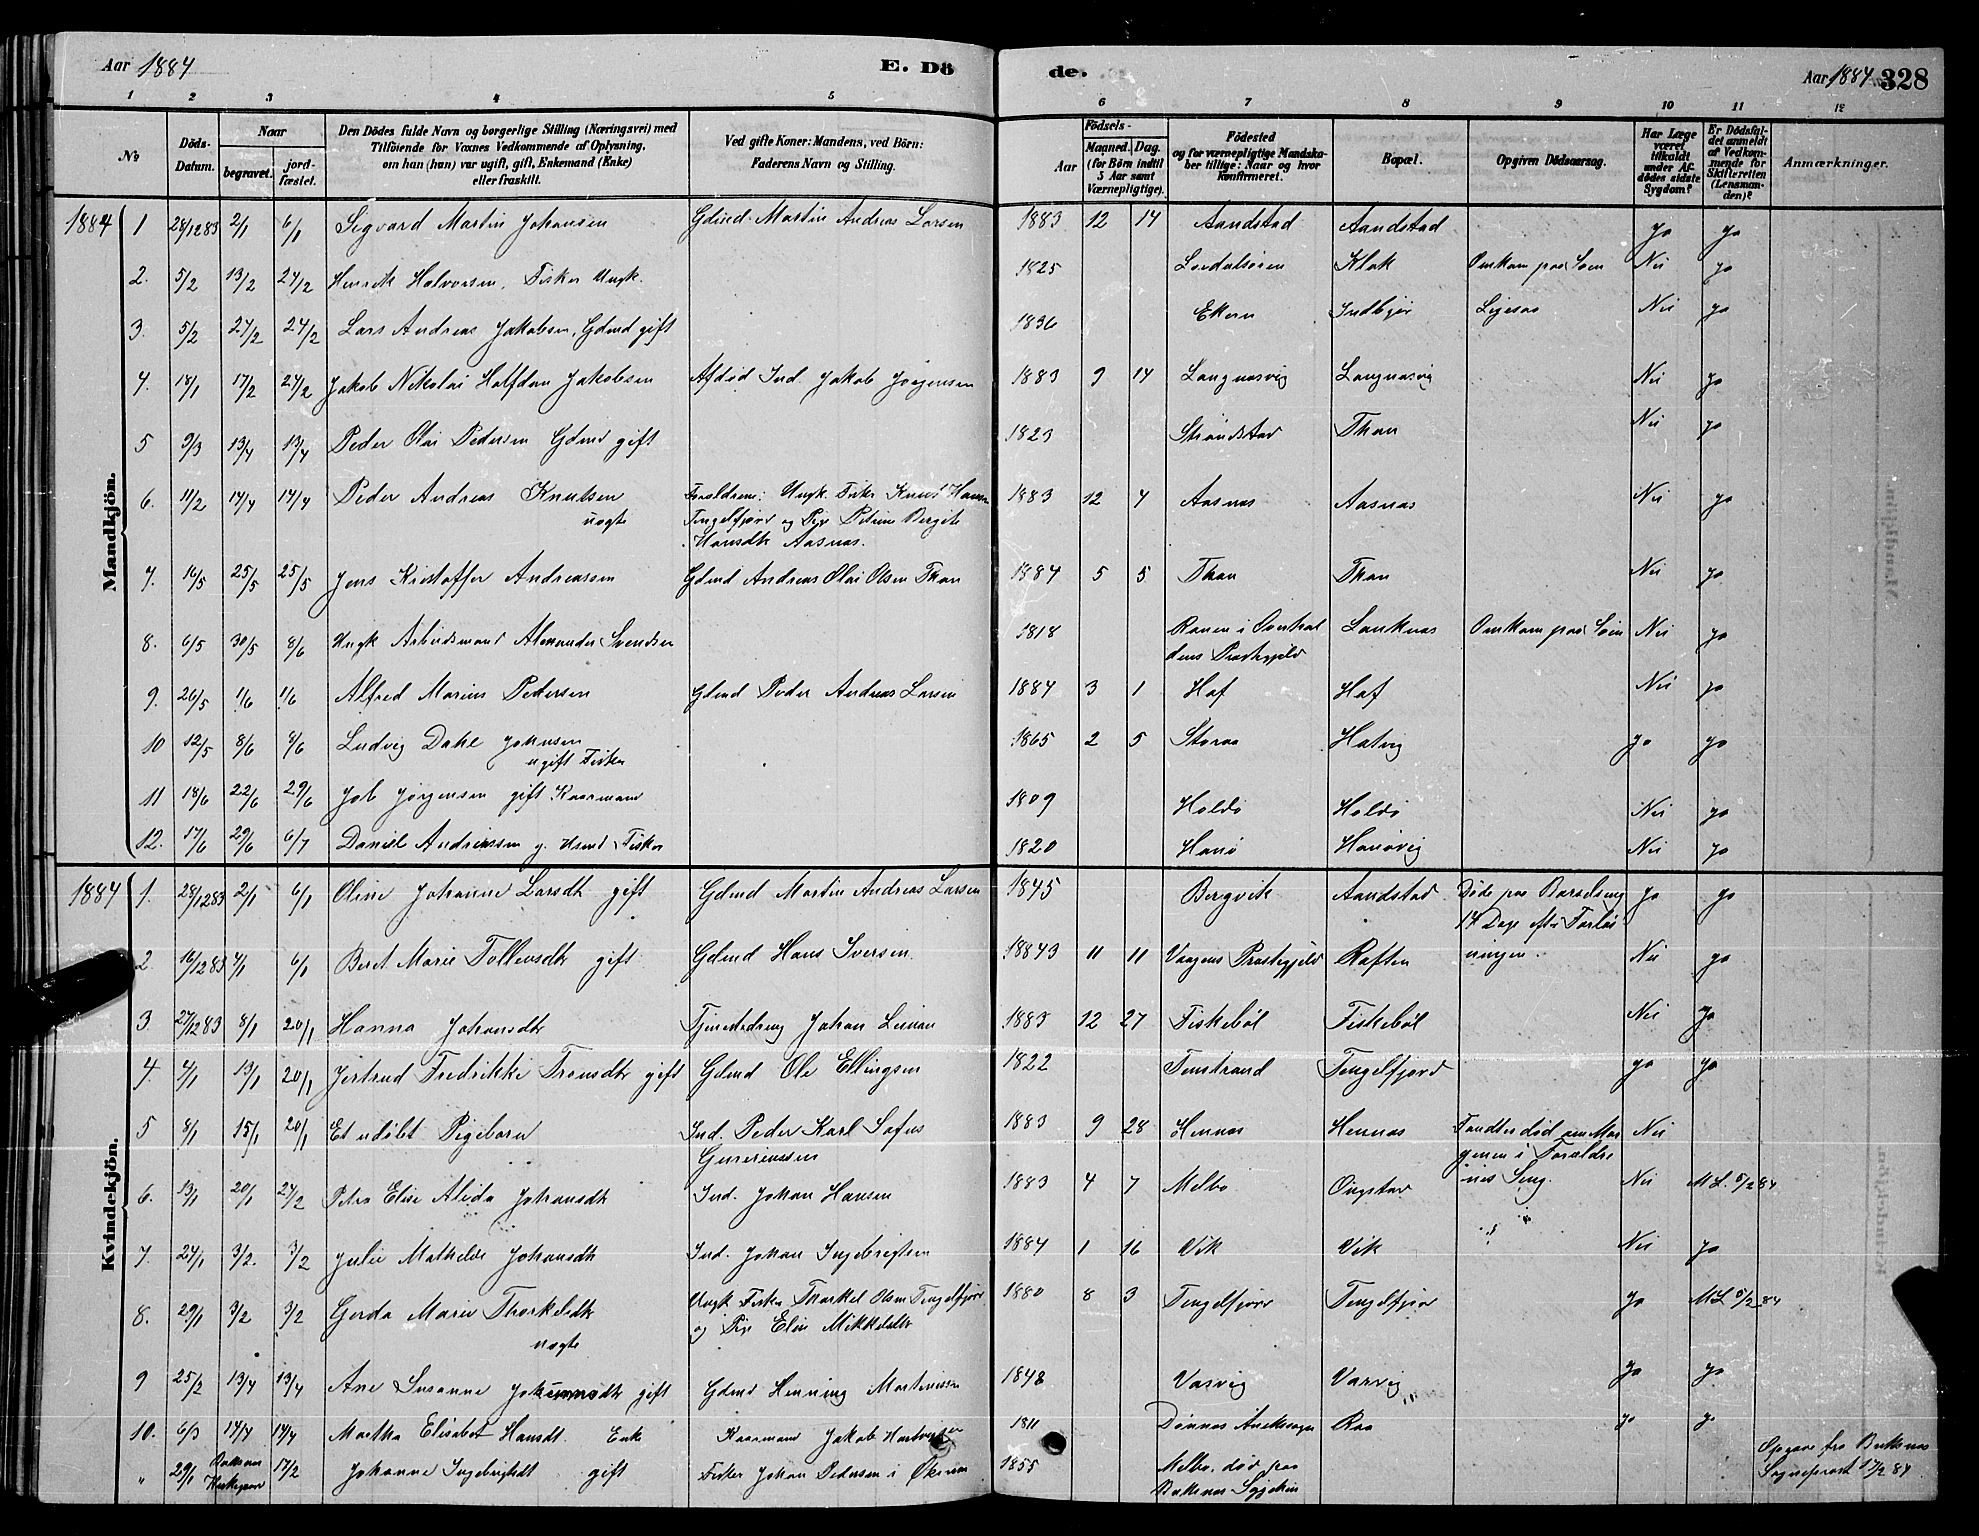 Aar 1884 E. Dö de. Aar 1884 328
1 2 3 4 5 6 7 8 9 10 11 12
No Döds-Datum. Naar begravet. jord-fæstet. Den Dödes fulde Navn og borgerlige Stilling (Næringsvei) med Tilföiende for Voxnes Vedkommende af Oplysning, om han (hun) var ugift, gift, Enkemand (Enke) eller fraskilt. Ved gifte Koner: Mandens, ved Börn: Faderens Navn og Stilling. Födsels- Aar Maaned. Dag. (for Börn indtil 5 Aar samt Værnepligtige). Födested og for værnepligtige Mandskaber tillige: Naar og hvor konfirmeret. Bopæl. Opgiven Dödsaarsag. Har Læge været tilkaldt under Afdödes sidste Sygdom? Er Dödsfaldet anmeldt af Vedkommende for Skifteretten (Lensmanden)? Anmærkninger.
Mandkjön.
1884 1 28/12 83 2/1 6/1 Sigvard Martin Johansen Gdmd Martin Andreas Larsen 1883 12 14 Aandstad Aandstad ja ja
2. 5/2 13/2 24/2 Henrik Halvorsen, Fisker Ungk. 1825 Klak Omkom paa Söen Nei ja
3. 5/2 24/2 24/2 Lars Andreas Jakobsen, Gdmd gift 1836 Ekren Indbyör Ligesaa Nei ja
4. 18/1 17/2 24/2 Jakob Nikolai Halfdan Jakobsen Afdød Ind. Jakob Jörgensen 1883 9 14 Langnæsvig Langnæsvig Nei ja
5 9/3 13/4 13/4 Peder Olai Pedersen Gdmd gift 1823 Strandstad Than Nei ja
6. 11/2 14/4 14/4 Peder Andreas Knutsen uægte Forældrene: Ungk. Fisker Knud Hansen
Tengelfjord og Pige Petrine Bergite
Hansdtr Aasnæs. 1883 12 4 Aasnæs Aasnæs Nei ja
7. 16/5 25/5 25/5 Jens Kristoffer Andreassen Gdmd Andreas Olai Olsen Than 1884 5 5 Than Than Nei ja
8. 6/5 30/5 8/6 Ungk Arbeidsmand Alexander Svendsen 1818 Ranen i Præstegjeld Lanknæs Omkom paa Söen Nei ja
9. 26/5 1/6 1/6 Alfred Marius Pedersen Gdmd Peder Andreas Larsen 1884 3 1 Haf Haf Nei ja
10 12/5 8/6 8/6 Ludvig Dahl Johnsen
ugift Fisker 1865 2 5 Storaa Hatvig ja ja
11 18/6 22/6 29/6 Job Jörgensen gift Kaarmand 1809 Holdö Holdö Nei ja
12. 17/6 29/6 6/7 Daniel Andreassen g. Husmd Fisker 1820 Hanö Hanövig Nei ja
Kvindekjön.
1884 1. 28/12 83 2/1 6/1 Oline Johanne Larsdtr gift Gdmd Martin Andreas Larsen 1845 Bergvik Aandstad Döde paa Barselseng
14 Dage efter Forlösningen. ja ja
2. 16/12 83 4/1 6/1 Beret Marie Tollevsdtr gift Gdmd Hans Iversen. 18843 11 11 Vaagens Præstegjeld Raften Nei ja
3 27/12 83 8/1 20/1 Hanna Johansdtr Tjenestedreng Johan 1883 12 27 Fiskeböl Fiskeböl Nei ja
4. 4/1 13/1 20/1 Jertrud Fredrikke Tronsdtr gift Gdmd Ole Ellingsen 1822 Finstrand Tengelfjord ja ja
5 8/1 15/1 20/1 Et udöbt Pigebarn Ind. Peder Karl Sofus
1883 9 28 Hennæs Hennæs Fandtes död om Morgenen i Forældrenes Seng. Nei
6. 13/1 20/1 24/2 Petra Elise Alida Johansdtr Ind. Johan Hansen 1883 4 7 Melbo Ongstad Nei ML. 5/2 84
7. 24/1 3/2 3/2 Julie Mathilde Johansdtr Ind. Johan Ingebrigtsen 1884 1 16 Vik Vik Nei ja
8. 29/1 3/2 3/2 Gerda Marie Thorkelsdtr
uægte Ungk Fisker Thorkel Olsen Tengelfjord
og Pige Eline Mikkelsdtr 1880 8 3 Tengelfjord Tengelfjord ja ML 5/2 84
9 25/2 13/4 13/4 Ane Susanne Johannesdtr gift Gdmd Henning Martinussen 1848 Vasvig Vasvig ja ja
10. 6/3 14/4 14/4 Martha Elisabet Hansdt. Enke Kaarmand Jakob Hartvigsen 1811 Dönnæs Annexsogn Raa ja ja
" 29/1 17/2 Johanne Ingebrigtsdt gift Fisker Johan Pedersen i 1855 Melbo, död paa
Opgave fra Buknæs
Sogneprest 17/2 84